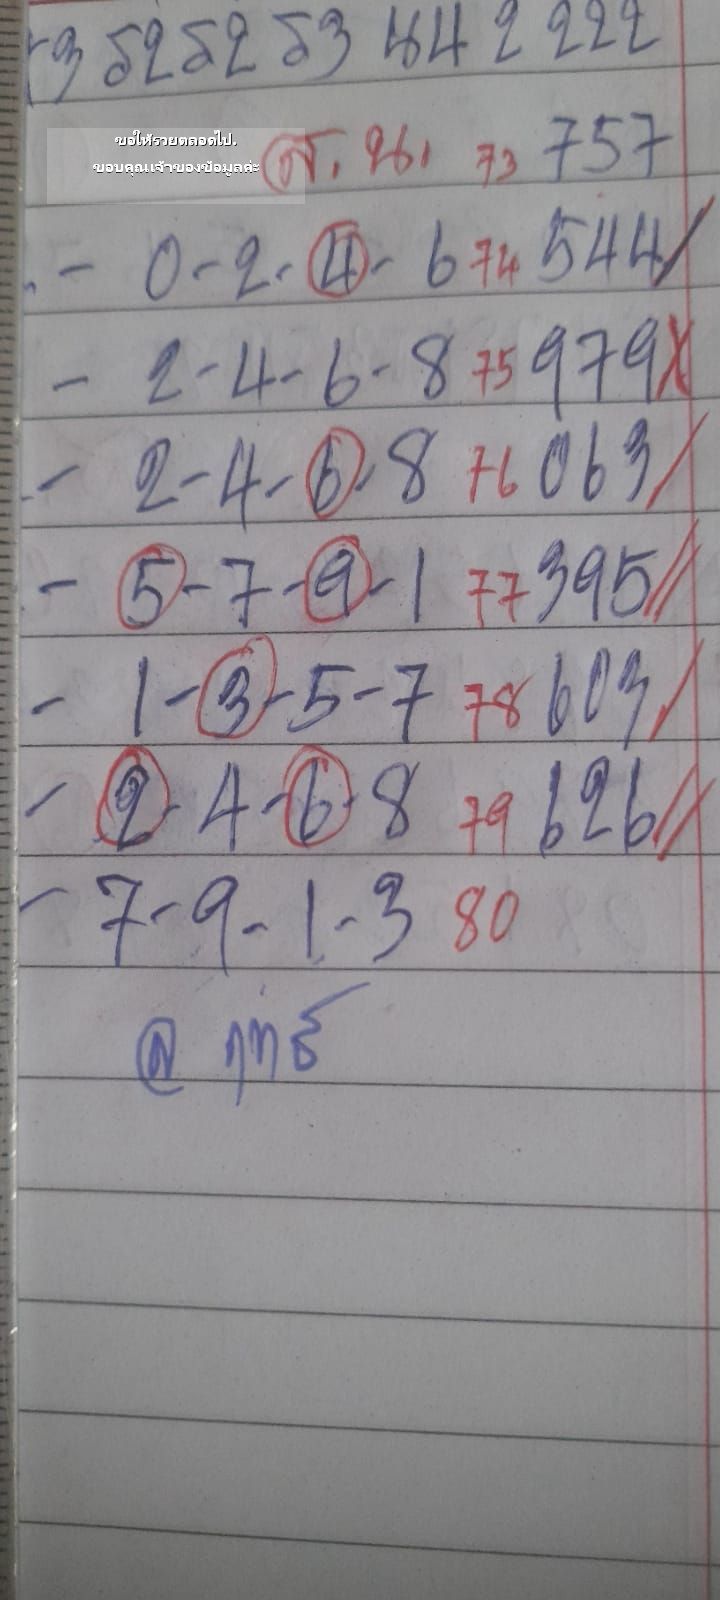 ขอให้รวยตลอดไป.
ขอบคุณเจ้าของข้อมูลค่ะ
73 757
- 0-2-4-6 74 544/
- 2-4-6-8 75 979X
- 2-4-6-8 76 063/
- 5-7-9-1 77 395//
- 1-3-5-7 78 603/
- 2-4-6-8 79 626//
- 7-9-1-3 80